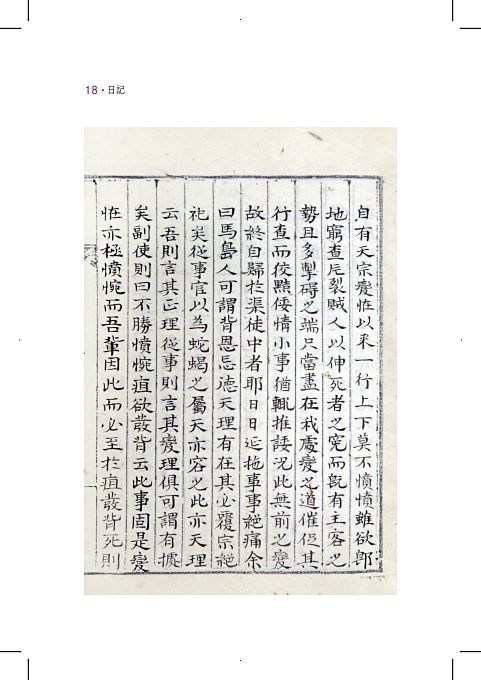 18 · 日記
自有天宗變恠以來一行上下莫不憤憤雖欲卽
地窮查卮裂賊人以伸死者之寃而旣有主客之
勢且多掣碍之端只當盡在我處變之道催促其
行查而佼黠倭情小事猶輒推諉况此無前之變
故終自歸於渠徒中者耶日日延拖事事絕痛余
曰馬島人可謂背恩忘德天理有在其必覆宗絕
祀矣從事官以爲蛇蝎之屬天亦容之此亦天理
云吾則言其正理從事則言其變理俱可謂有據
矣副使則曰不勝憤惋疽欲發背云此事固是變
恠亦極憤惋而吾輩因此而必至於疽發背死則